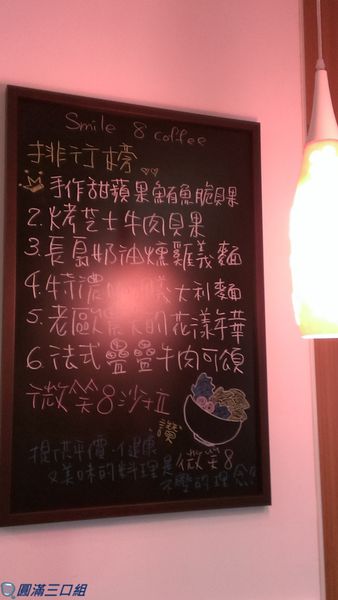 Smile 8 coffee
排行榜
手作甜蘋果鮪魚脆貝果
2.烤芝士牛肉貝果
3.長島奶油燻雞義麵
4.特濃 大利麵
5.老歐 的花漾年華
6.法式疊疊牛肉可頌
微笑8沙拉
讚
提供平價、健康
又美味的料理是微笑8
不變的理念!!
圓滿三口組